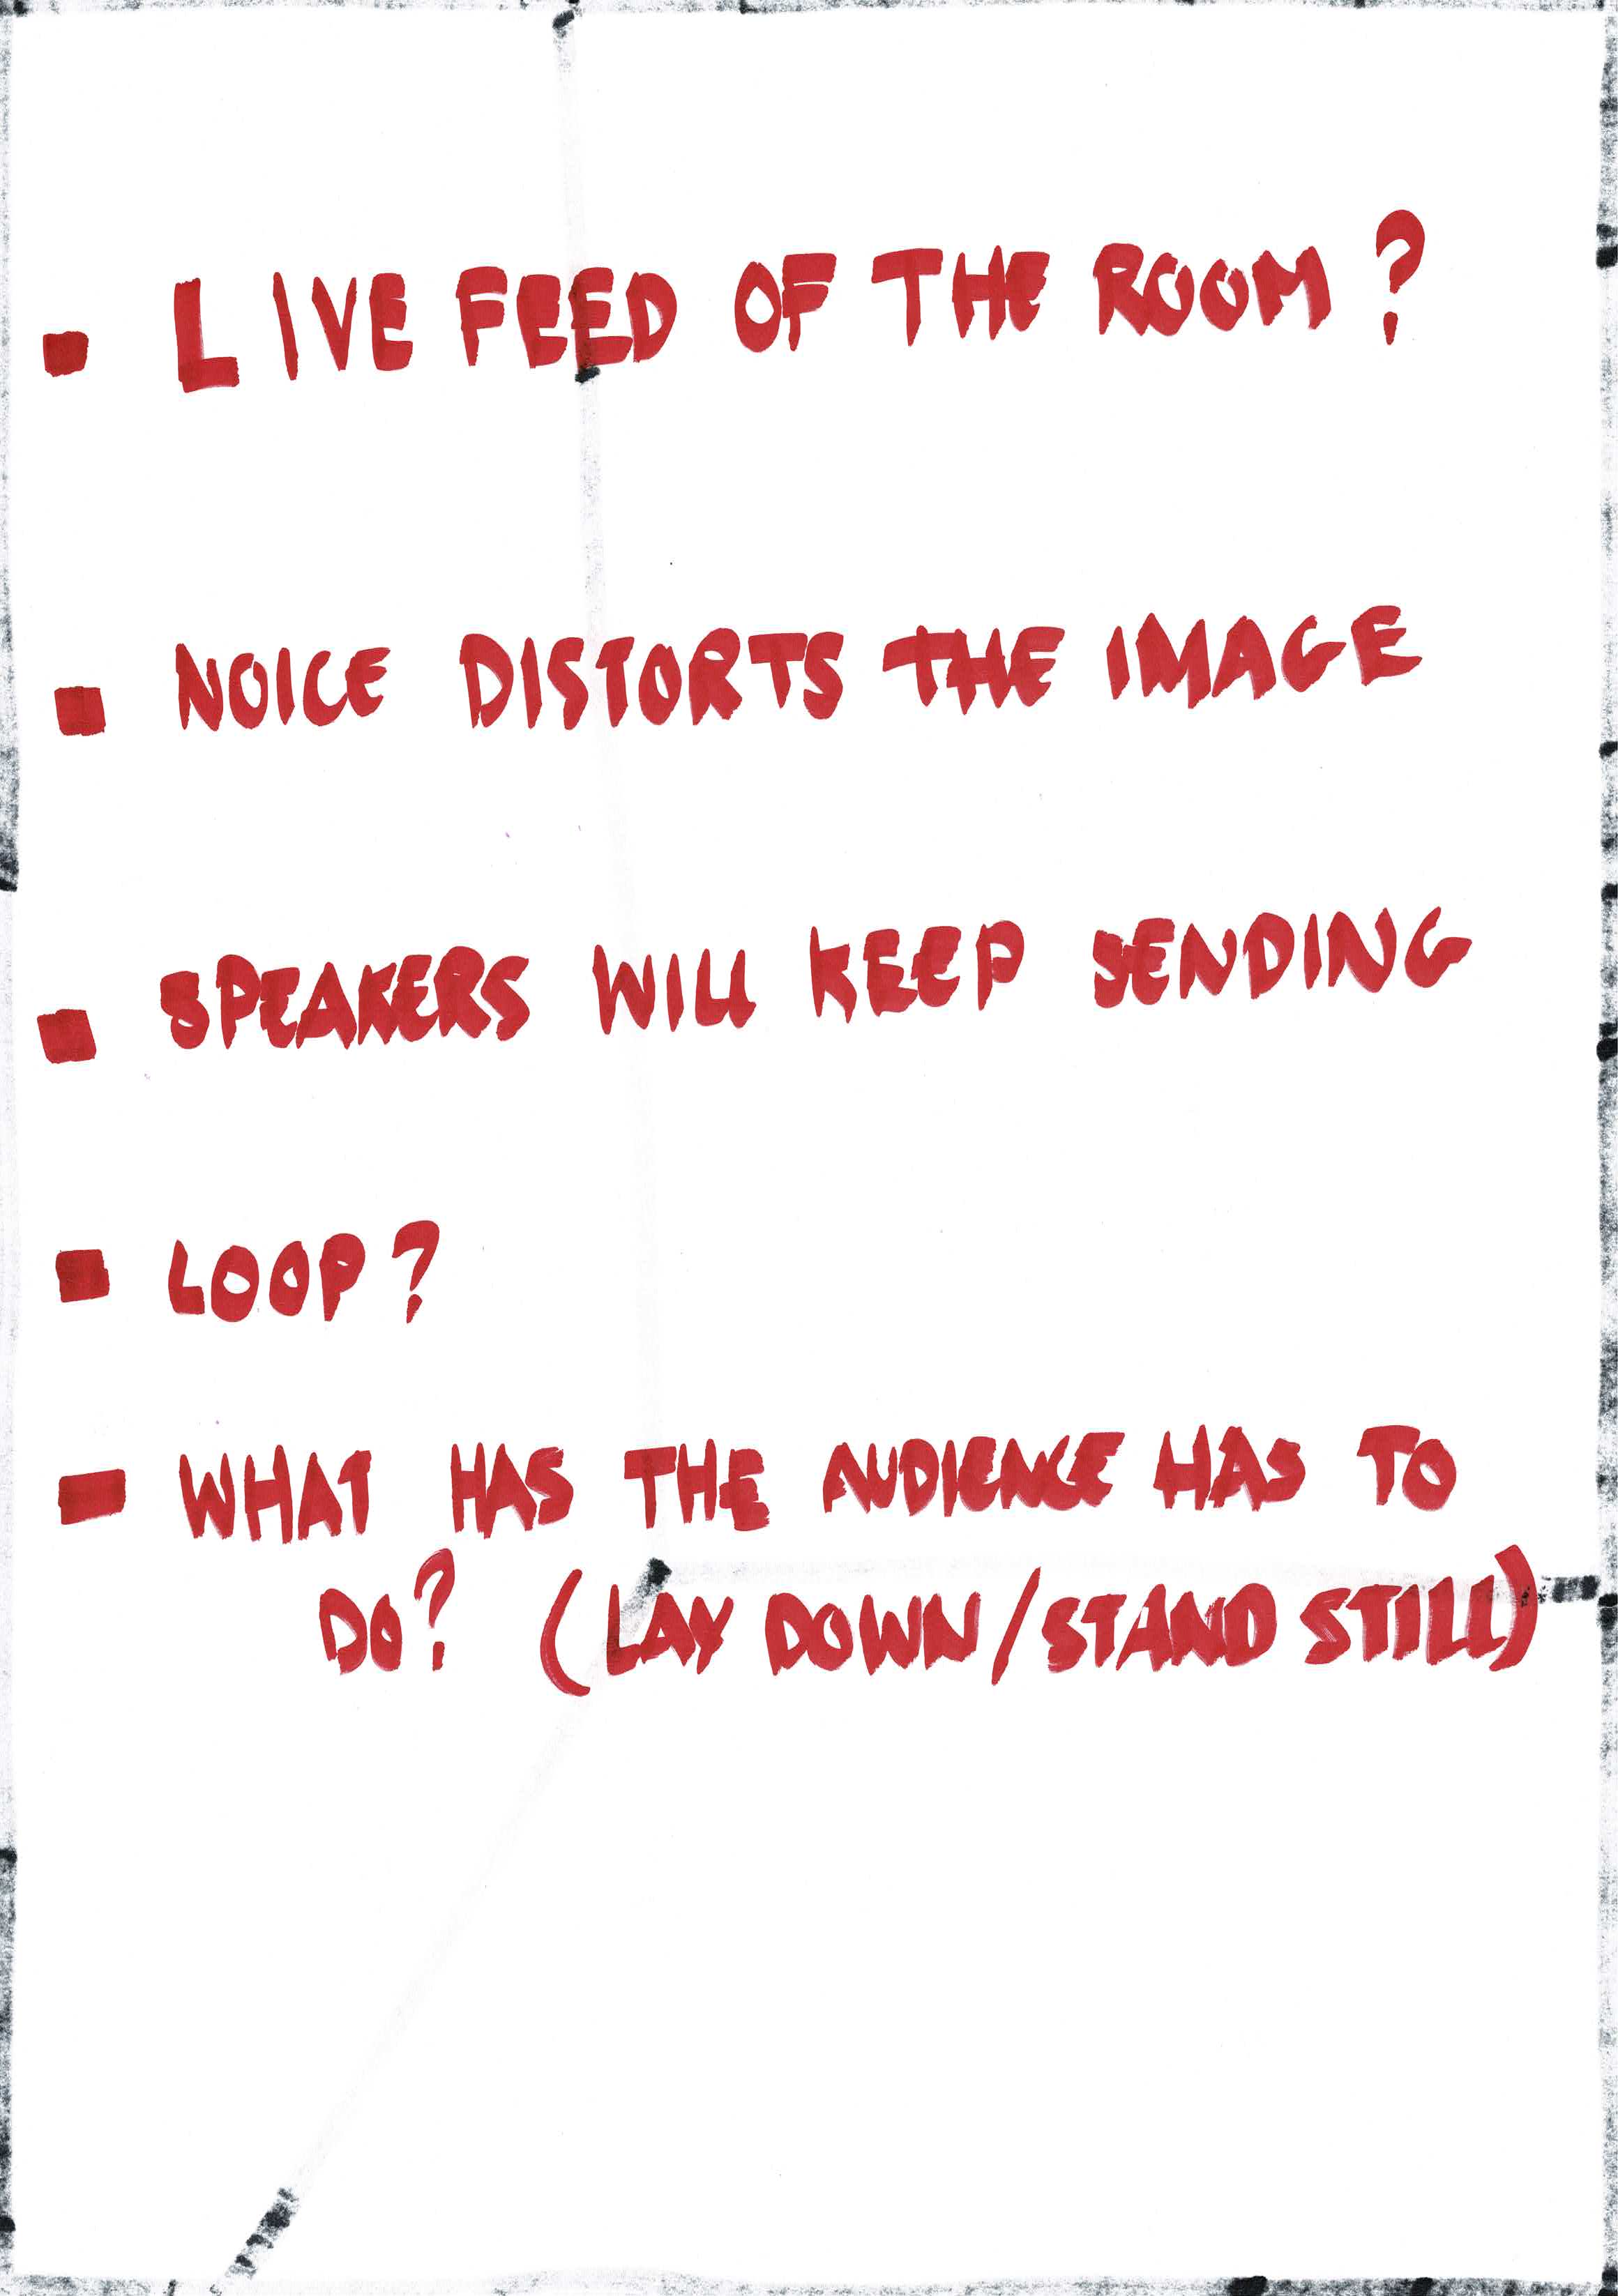 ▪ LIVE FEED OF THE ROOM?
▪ NOICE DISTORTS THE IMAGE
▪ SPEAKERS WILL KEEP SENDING
▪ LOOP?
▪ WHAT HAS THE AUDIENCE HAS TO
DO? (LAY DOWN/STAND STILL)